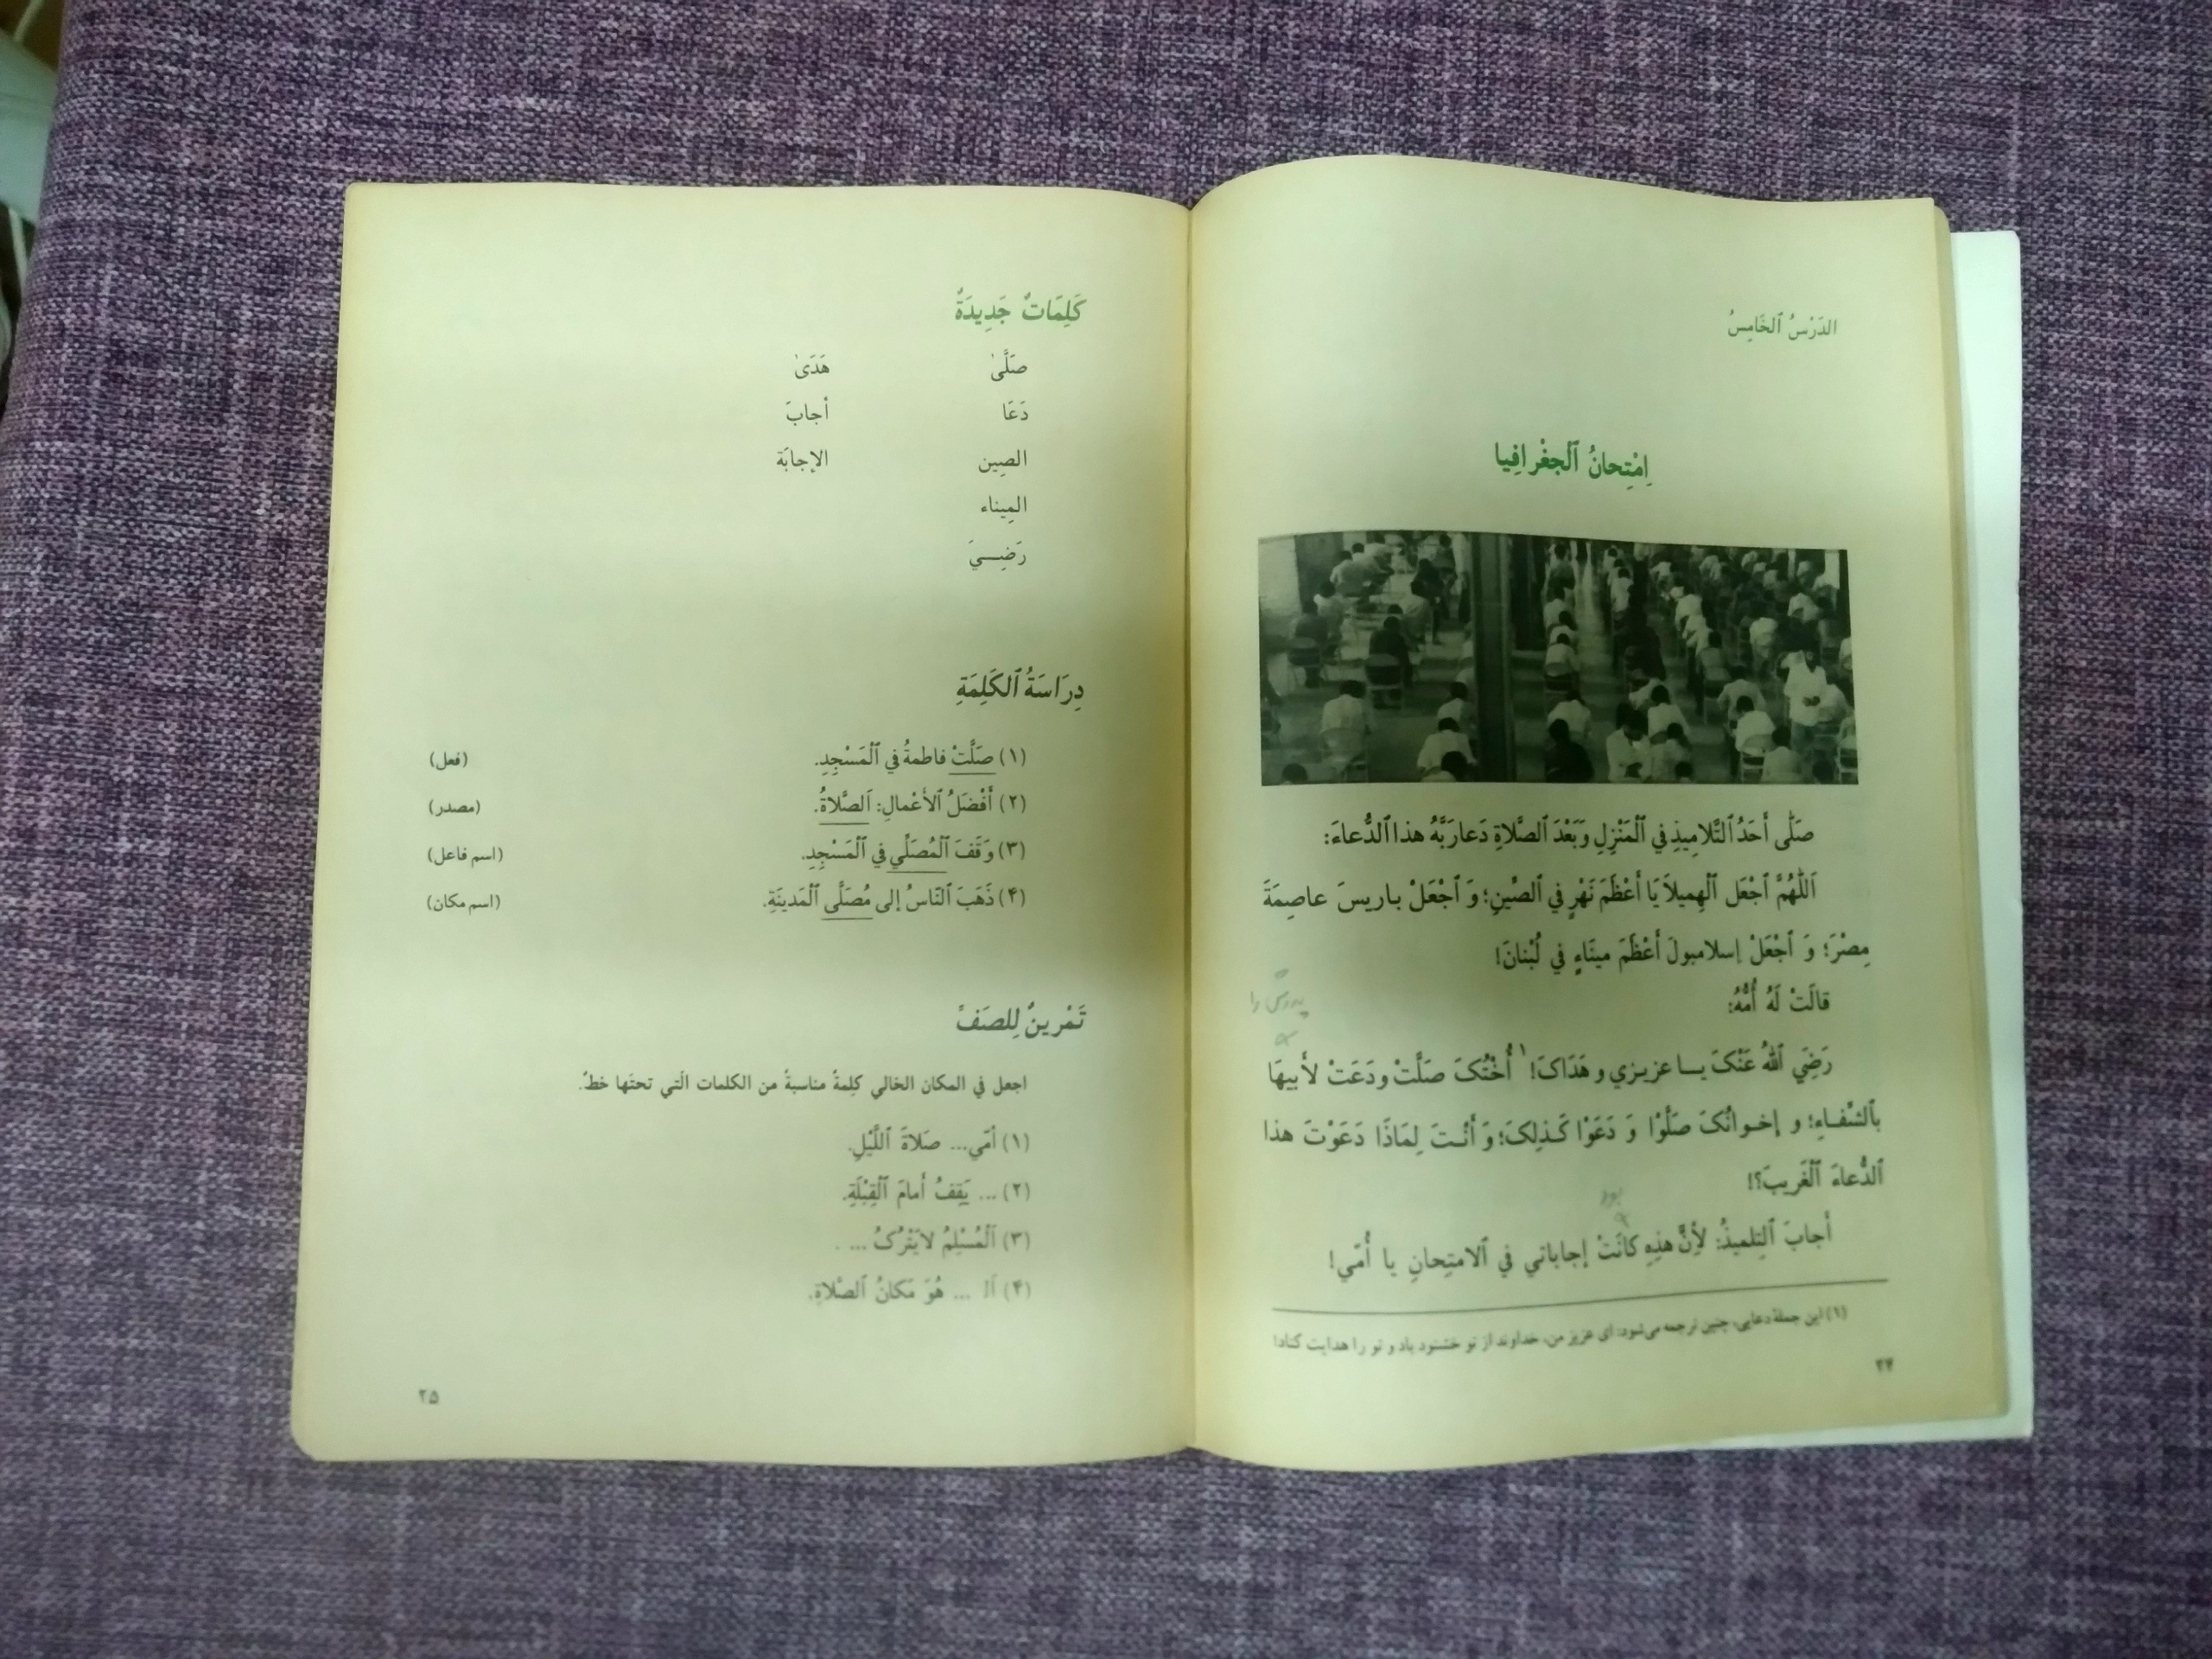 الدَرْسُ ٱلخَامِسُ
اِمْتِحانُ ٱلْجغْرافِيا
صَلّٰى أَحَدُ ٱلتَّلامِيذِ في ٱلْمَنْزِلِ وَبَعْدَ ٱلصَّلاةِ دَعارَبَّهُ هذا ٱلدُّعاءَ:
اَللّٰهُمَّ ٱجْعَل ٱلْهِميلاَيَا أَعْظَمَ نَهْرٍ في ٱلصِّينِ؛ وَ ٱجْعَلْ باريسَ عاصِمَةَ
مِصْرَ؛ وَ ٱجْعَلْ إسلامبولَ أَعْظَمَ مينَاءٍ في لُبْنانَ!
قالَتْ لَهُ أُمُّهُ:
پدرش را
رَضِيَ ٱللهُ عَنْكَ يــا عزيـزي و هَدَاكَ!¹ أُخْتُكَ صَلَّتْ ودَعَتْ لأَبِيهَا
بٱلشِّفـاءِ؛ و إخـوانُكَ صَلَّوْا وَ دَعَوْا كَـذلِكَ؛ وَ أَنْـتَ لِمَاذَا دَعَوْتَ هذا
ٱلدُّعاءَ ٱلْغَريبَ؟!
بود
أَجابَ ٱلتِلميذُ: لأِنَّ هذِهِ كانَتْ إجاباتي في ٱلامتِحانِ يا أُمّي!
(۱) این جملهٔ دعایی، چنین ترجمه می‌شود: ای عزیز من، خداوند از تو خشنود باد و تو را هدایت کناد!
۲۴
كَلِمَاتٌ جَدِيدَةٌ
صَلَّىٰ هَدَىٰ
دَعَا أجابَ
الصِين الإجابَة
المِيناء
رَضِــيَ
دِرَاسَةُ ٱلكَلِمَةِ
(۱) صَلَّتْ فاطمةُ في ٱلْمَسْجِدِ. (فعل)
(۲) أَفْضَلُ ٱلأَعْمالِ: اَلصَّلاةُ. (مصدر)
(۳) وَقَفَ ٱلْمُصَلِّي في ٱلْمَسْجِدِ. (اسم فاعل)
(۴) ذَهَبَ ٱلنّاسُ إلى مُصَلَّى ٱلْمَدينَةِ. (اسم مكان)
تَمْرينٌ لِلصَفّ
اجعل في المكان الخالي كلِمةً مناسبةً من الكلمات الّتي تحتَها خطّ.
(۱) أمّي... صَلاةَ ٱللَّيْلِ.
(۲) ... يَقِفُ أمامَ ٱلْقِبْلَةِ.
(۳) اَلْمُسْلِمُ لايَتْرُكُ ... .
(۴) اَلـ ... هُوَ مَكانُ ٱلصَّلاةِ.
۲۵